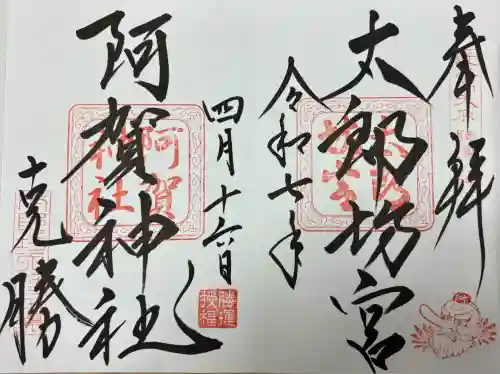 奉拝
太郎坊宮
太郎坊宮
令和七年
四月十六日
勝運授福
阿賀神社
阿賀神社
勝